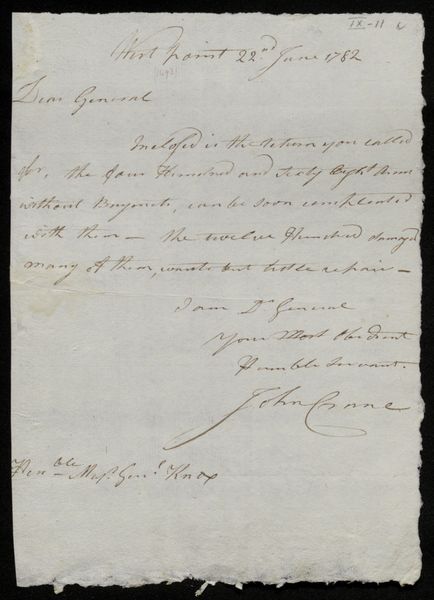 IX-11
West point 22nd June 1782
Dear General
Inclosed is the return you called
for, the four Hundred and Sixty Eight Arms
without Bayonets, can be soon compleated
with them — the twelve Hundred damaged
many of them, wants but little repair —
I am Dr General
Your Most Obedient
Humble Servant.
John Crane
Honble Majr Genl Knox